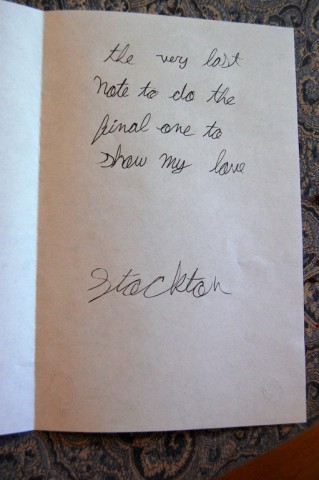 the very last
note to do the
final one to
show my love
Stockton